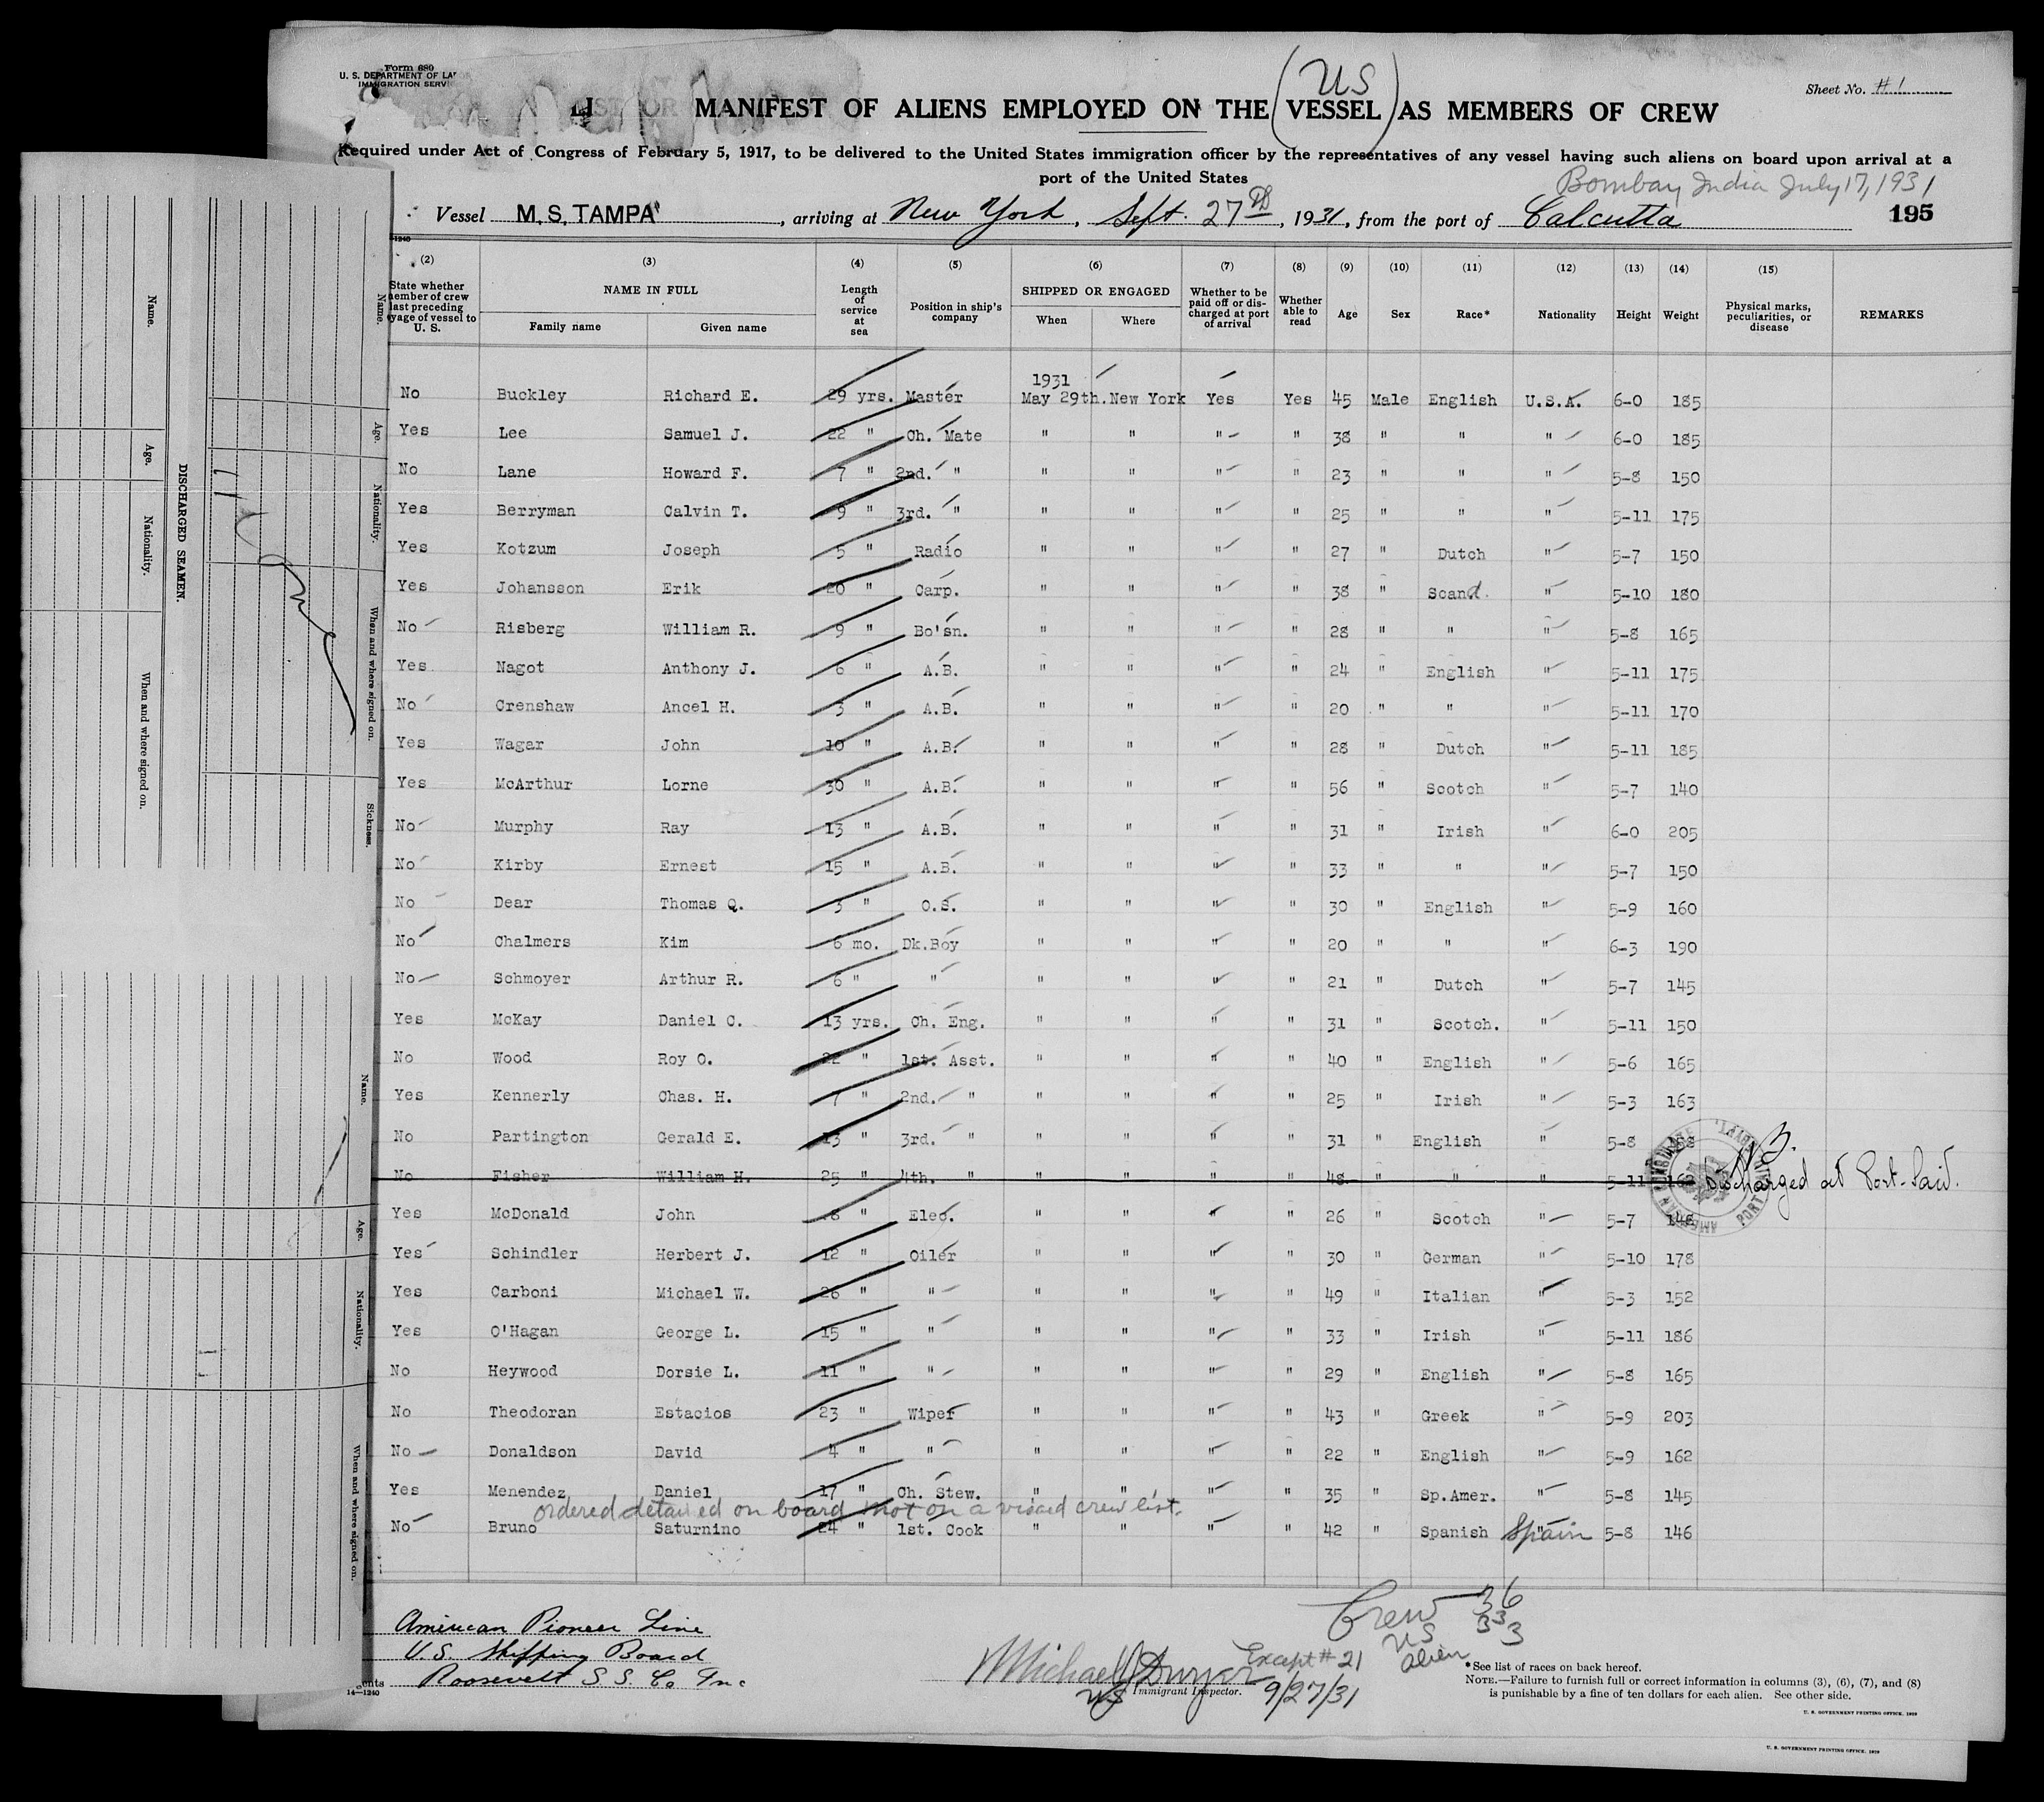 Form 680
U. S. DEPARTMENT OF LABOR
IMMIGRATION SERVI
Sheet No. #1
(US)
LIST OR MANIFEST OF ALIENS EMPLOYED ON THE VESSEL AS MEMBERS OF CREW
Required under Act of Congress of February 5, 1917, to be delivered to the United States immigration officer by the representatives of any vessel having such aliens on board upon arrival at a
port of the United States
Bombay, India July 17, 1931
Vessel M.S. TAMPA, arriving at New York, Sept. 27th, 1931, from the port of Calcutta 195
(2) (3) (4) (5) (6) (7) (8) (9) (10) (11) (12) (13) (14) (15)
State whether member of crew last preceding voyage of vessel to U. S. NAME IN FULL Family name Given name Length of service at sea Position in ship's company SHIPPED OR ENGAGED When Where Whether to be paid off or discharged at port of arrival Whether able to read Age Sex Race* Nationality Height Weight Physical marks, peculiarities, or disease REMARKS
1931
No Buckley Richard E. 29 yrs. Master May 29th. New York Yes Yes 45 Male English U.S.A. 6-0 185
Yes Lee Samuel J. 22 " Ch. Mate " " " " 38 " " " 6-0 185
No Lane Howard F. 7 " 2nd. " " " " " 23 " " " 5-8 150
Yes Berryman Calvin T. 9 " 3rd. " " " " " 25 " " " 5-11 175
Yes Kotzum Joseph 5 " Radio " " " " 27 " Dutch " 5-7 150
Yes Johansson Erik 20 " Carp. " " " " 38 " Scand. " 5-10 180
No Risberg William R. 9 " Bo'sn. " " " " 28 " " " 5-8 165
Yes Nagot Anthony J. 6 " A.B. " " " " 24 " English " 5-11 175
No Crenshaw Ancel H. 3 " A.B. " " " " 20 " " " 5-11 170
Yes Wagar John 10 " A.B. " " " " 28 " Dutch " 5-11 185
Yes McArthur Lorne 30 " A.B. " " " " 56 " Scotch " 5-7 140
No Murphy Ray 13 " A.B. " " " " 31 " Irish " 6-0 205
No Kirby Ernest 15 " A.B. " " " " 33 " " " 5-7 150
No Dear Thomas Q. 3 " O.S. " " " " 30 " English " 5-9 160
No Chalmers Kim 6 mo. Dk.Boy " " " " 20 " " " 6-3 190
No Schmoyer Arthur R. 6 " " " " " " 21 " Dutch " 5-7 145
Yes McKay Daniel C. 13 yrs. Ch. Eng. " " " " 31 " Scotch. " 5-11 150
No Wood Roy O. 22 " 1st. Asst. " " " " 40 " English " 5-6 165
Yes Kennerly Chas. H. 7 " 2nd. " " " " " 25 " Irish " 5-3 163
No Partington Gerald E. 13 " 3rd. " " " " " 31 " English " 5-8
No Fisher William H. 25 " 4th. " " " " " 48 " " " 5-11 162 Discharged at Port-Said.
Yes McDonald John 8 " Elec. " " " " 26 " Scotch " 5-7 146
Yes Schindler Herbert J. 12 " Oiler " " " " 30 " German " 5-10 178
Yes Carboni Michael W. 26 " " " " " " 49 " Italian " 5-3 152
Yes O'Hagan George L. 15 " " " " " " 33 " Irish " 5-11 186
No Heywood Dorsie L. 11 " " " " " " 29 " English " 5-8 165
No Theodoran Estacios 23 " Wiper " " " " 43 " Greek " 5-9 203
No Donaldson David 4 " " " " " " 22 " English " 5-9 162
Yes Menendez Daniel 17 " Ch. Stew. " " " " 35 " Sp.Amer. " 5-8 145
ordered detained on board not on a visaed crew list.
No Bruno Saturnino 24 " 1st. Cook " " " " 42 " Spanish Spain 5-8 146
Crew 36
US 33
alien 3
American Pioneer Line
U.S. Shipping Board
Roosevelt S.S. Co Inc
ents
14—1240
Michael J Dwyer Except #21
US Immigrant Inspector. 9/27/31
*See list of races on back hereof.
NOTE.—Failure to furnish full or correct information in columns (3), (6), (7), and (8)
is punishable by a fine of ten dollars for each alien. See other side.
U. S. GOVERNMENT PRINTING OFFICE, 1929
U. S. GOVERNMENT PRINTING OFFICE, 1929
DISCHARGED SEAMEN.
Name. Age. Nationality. When and where signed on.
Name. Age. Nationality. When and where signed on. Sickness.
Name. Age. Nationality. When and where signed on.